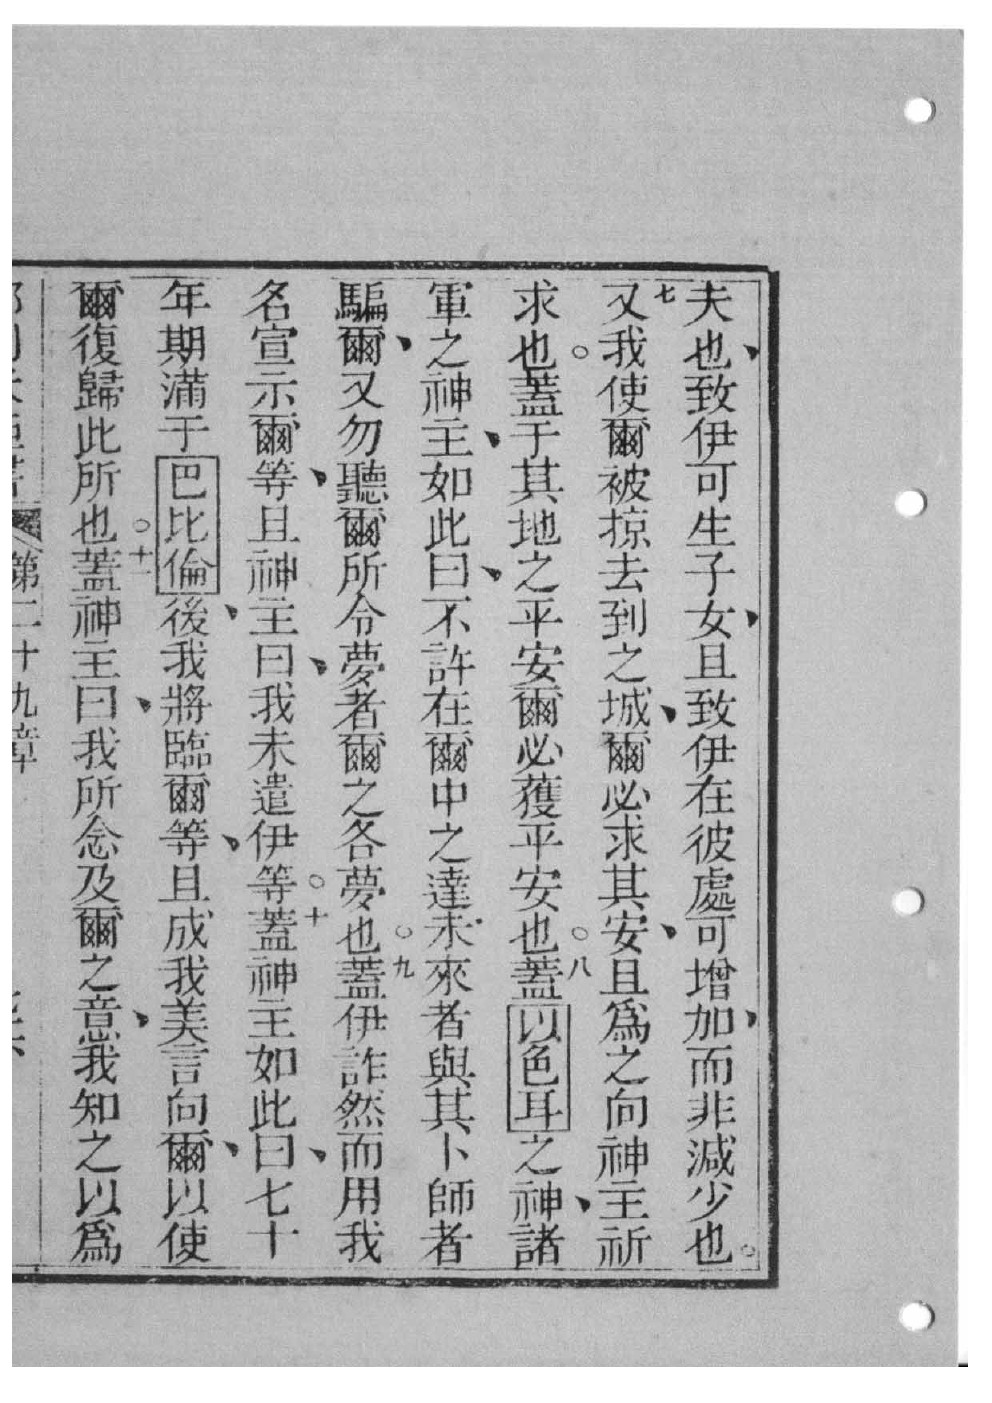 夫也、致伊可生子女、且致伊在彼處可增加、而非減少也。
七又我使爾被掠去到之城、爾必求其安、且爲之向神主祈
求也。蓋于其地之平安爾必獲平安也。八蓋以色耳之神、諸
軍之神主、如此曰、不許在爾中之達未來者與其卜師者
騙爾、又勿聽爾所令夢者爾之各夢也。九蓋伊詐然而用我
名宣示爾等、且神主曰、我未遣伊等。十蓋神主如此曰、七十
年期滿于巴比倫後、我將臨爾等、且成我美言向爾、以使
爾復歸此所也。十一蓋神主曰、我所念及爾之意、我知之以爲
第二十九章